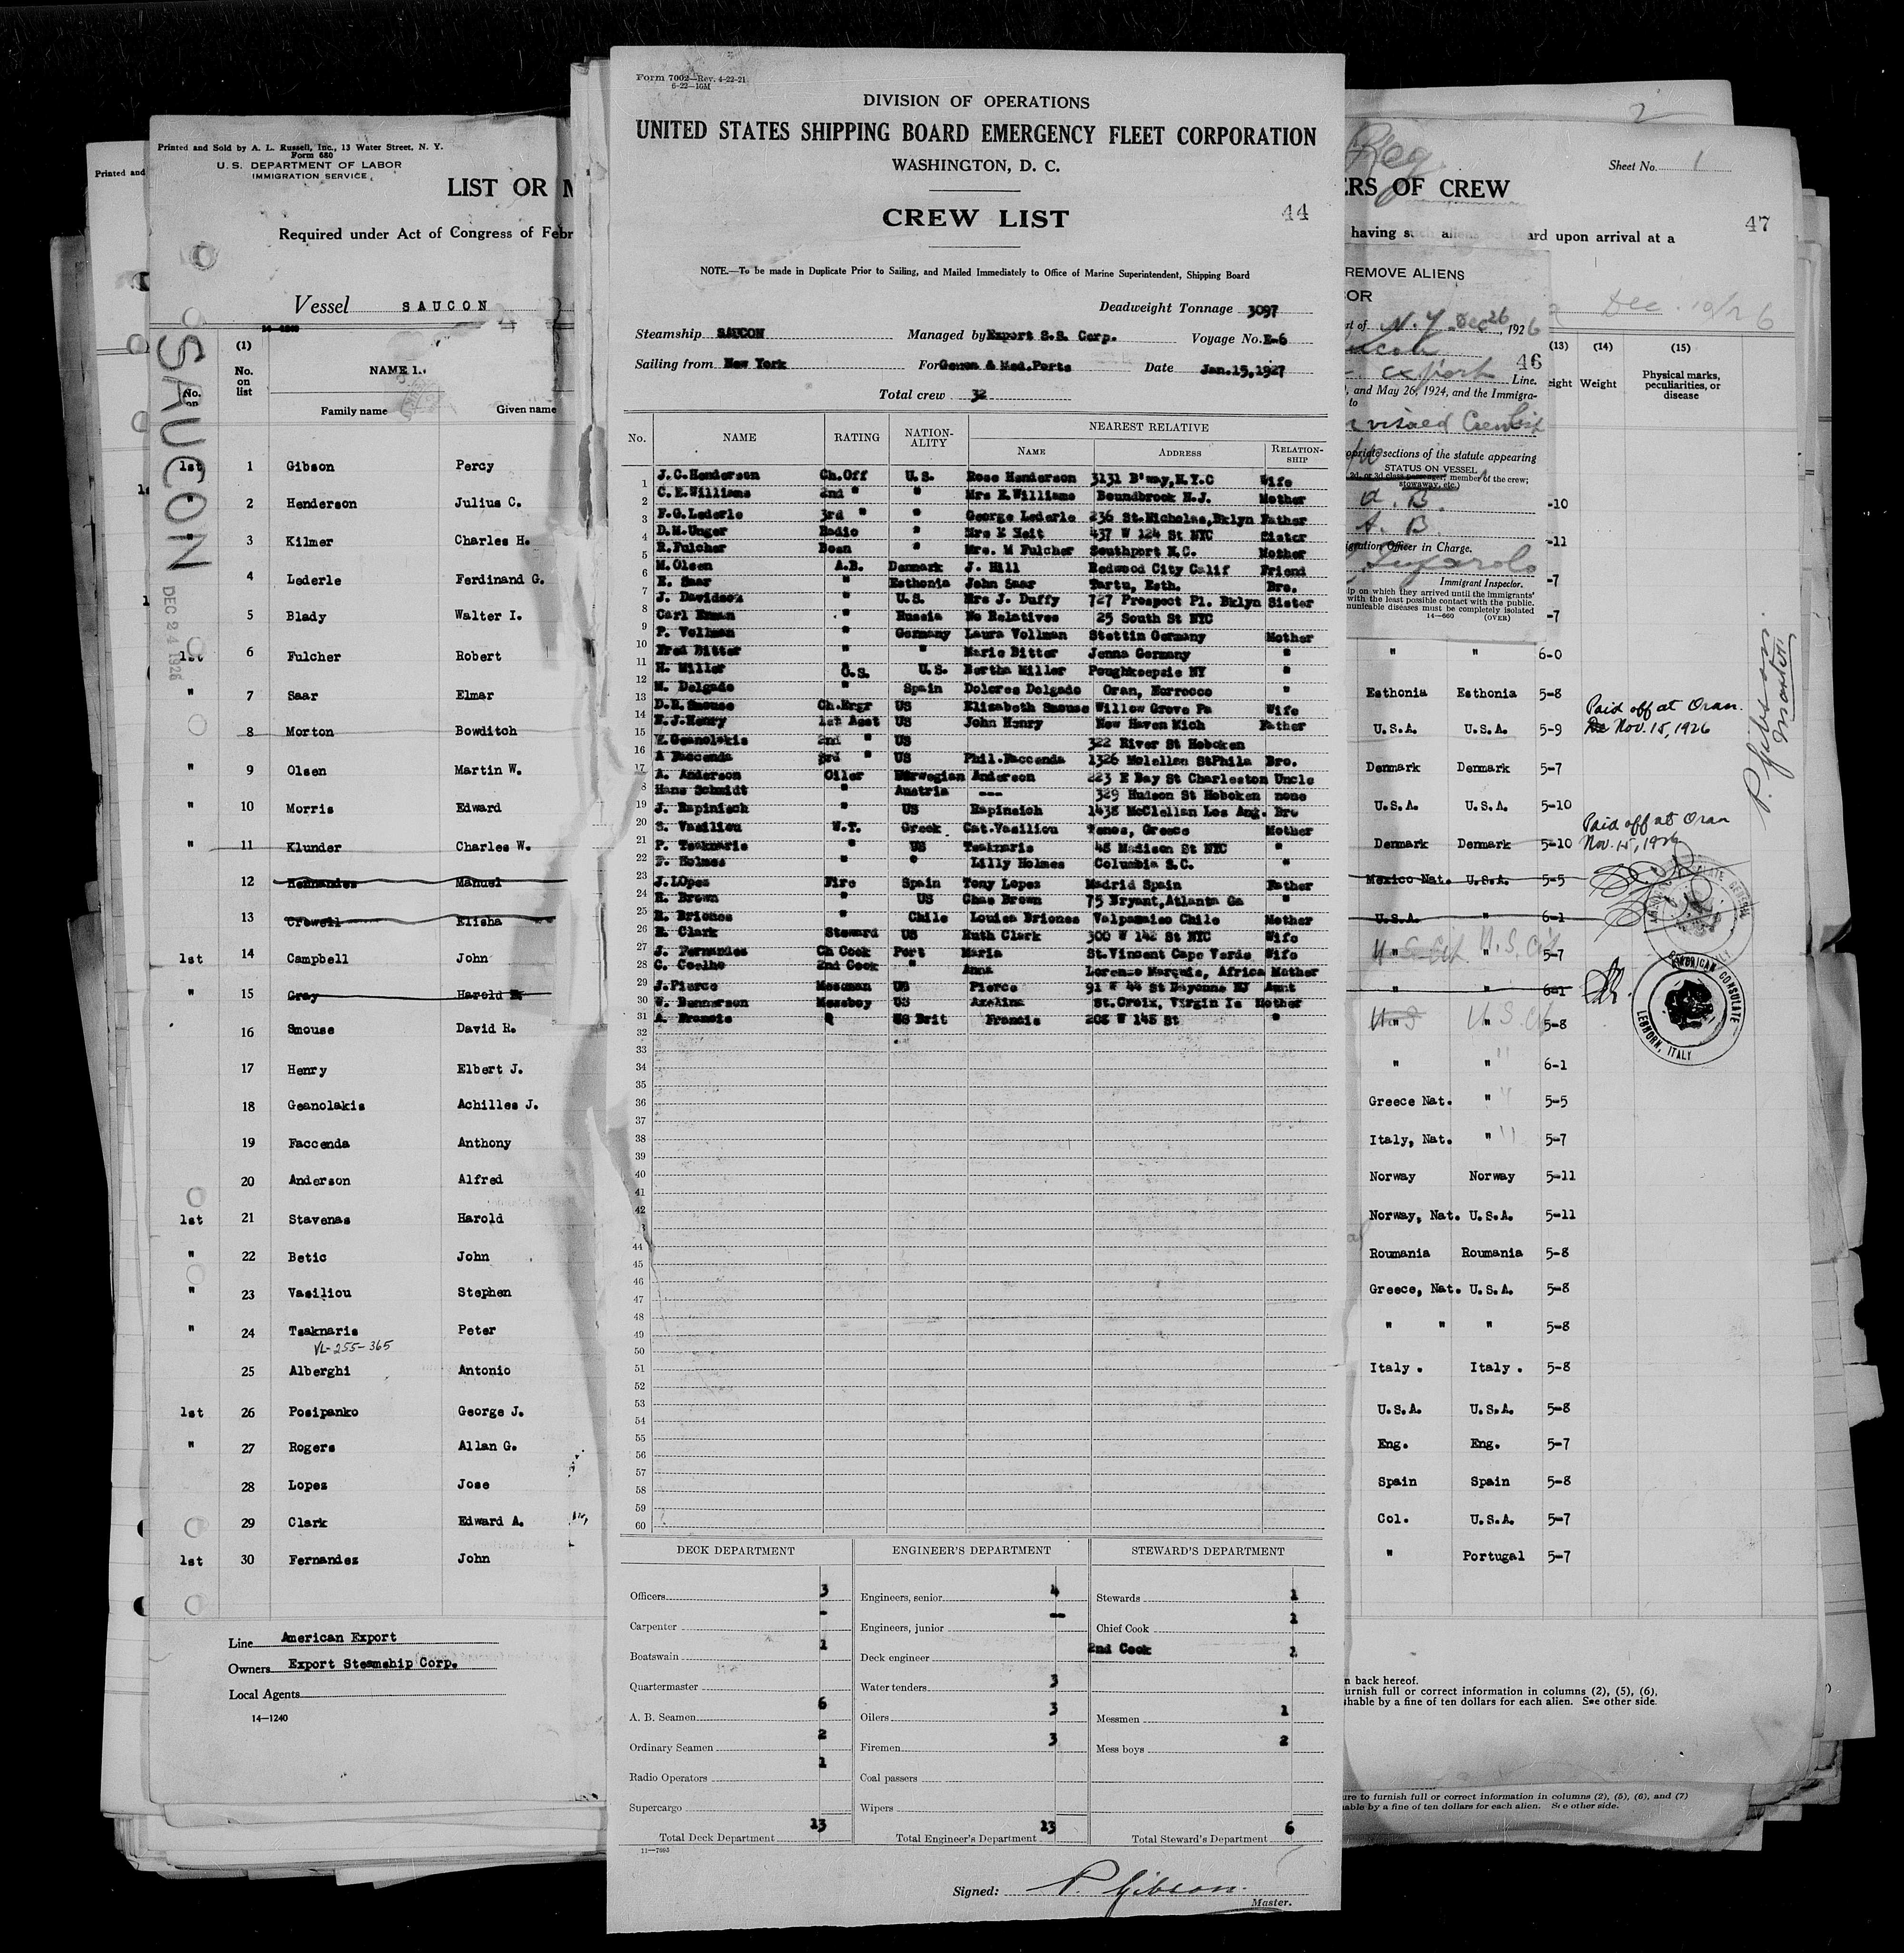 Form 7002—Rev. 4-22-21
6-22—10M
DIVISION OF OPERATIONS
UNITED STATES SHIPPING BOARD EMERGENCY FLEET CORPORATION
WASHINGTON, D. C.
CREW LIST
44
NOTE.—To be made in Duplicate Prior to Sailing, and Mailed Immediately to Office of Marine Superintendent, Shipping Board
Deadweight Tonnage 3097
Steamship SAUCON Managed by Export S.S. Corp. Voyage No. E-6
Sailing from New York For Genoa & Med.Ports Date Jan.15,1927
Total crew 32
No. NAME RATING NATION-ALITY NEAREST RELATIVE
NAME ADDRESS RELATION-SHIP
1 J.C.Henderson Ch.Off U.S. Rose Henderson 3131 B'way,N.Y.C Wife
2 C.E.Williams 2nd " " Mrs E.Williams Boundbrook N.J. Mother
3 F.G.Lederle 3rd " " George Lederle 236 St.Nicholas,Bklyn Father
4 D.M.Unger Radio " Mrs 437 W 124 St NYC Sister
5 R.Fulcher Bosn " Mrs. M Fulcher Southport N.C. Mother
6 M.Olsen A.B. Denmark J. Hill Redwood City Calif Friend
7 E. Saar " Esthonia John Saar Tartu, Esth. Bro.
8 J. Davidson " U.S. Mrs J. Duffy 727 Prospect Pl. Bklyn Sister
9 Carl " Russia No Relatives 25 South St NYC
10 P. Vollman " Germany Laura Vollman Stettin Germany Mother
11 Fred Ditter " " Marie Ditter Jenna Germany "
12 H. Miller O.S. U.S. Bertha Miller Poughkeepsie NY "
13 M. Delgado " Spain Dolores Delgado Oran, Morrocco "
14 D.R.Smouse Ch.Engr US Elizabeth Smouse Willow Grove Pa Wife
15 E.J.Henry 1st Asst US John Henry New Haven Mich Father
16 Geanolakis 2nd " US 322 River St Hoboken
17 A Faccenda 3rd " US Phil.Faccenda 1326 Mclellan StPhila Bro.
18 A. Anderson Oiler Norwegian Anderson 223 E Bay St Charleston Uncle
19 Hans Schmidt " Austria --- 329 Hudson St Hoboken none
20 J. Rapinisch " US Rapinsich 1438 McClellan Los Ang. Bro
21 S. Vasiliou W.T. Greek Cat.Vasiliou Tenos, Greece Mother
22 P. Tsaknaris " US Tsaknaris 48 Madison St NYC "
23 Holmes " " Lilly Holmes Columbia S.C. "
24 J.LOpez Fire Spain Tony Lopez Madrid Spain Father
25 R. Brown " US Chas Brown 75 Bryant,Atlanta Ga "
26 R. Briones " Chile Louisa Briones Valparaiso Chile Mother
27 E. Clark Steward US Ruth Clark 300 W 142 St NYC Wife
28 J. Fernandes Ch Cook Port Maria St.Vincent Cape Verde Wife
29 C. Coelho 2nd Cook " Anna Lorenzo Marquis, Africa Mother
30 J.Pierce Messman US Pierce 91 W 44 St Bayonne NJ Aunt
31 W. Messboy US Axelina St.Croix, Virgin Is Mother
32 A. Francis US Brit Francis 208 W 148 St "
33
34
35
36
37
38
39
40
41
42
44
45
46
47
48
49
50
51
52
53
54
55
56
57
58
59
60
DECK DEPARTMENT
Officers 3
Carpenter -
Boatswain 1
Quartermaster
A. B. Seamen 6
Ordinary Seamen 2
Radio Operators 1
Supercargo
Total Deck Department 13
ENGINEER'S DEPARTMENT
Engineers, senior 4
Engineers, junior --
Deck engineer
Water tenders 3
Oilers 3
Firemen 3
Coal passers
Wipers
Total Engineer's Department 13
STEWARD'S DEPARTMENT
Stewards 1
Chief Cook 1
2nd Cook 1
Messmen 1
Mess boys 2
Total Steward's Department 6
11—7093
Signed: P. Gibson.
Master.
Printed and
Printed and Sold by A. L. Russell, Inc., 13 Water Street, N. Y.
Form 680
U.S. DEPARTMENT OF LABOR
IMMIGRATION SERVICE
LIST OR
Required under Act of Congress of Febr
Vessel SAUCON
SAUCON
DEC 24 1926
(1)
No. on list
NAME
Family name Given name
1st 1 Gibson Percy
" 2 Henderson Julius C.
3 Kilmer Charles H.
4 Lederle Ferdinand G.
5 Blady Walter I.
1st 6 Fulcher Robert
" 7 Saar Elmar
8 Morton Bowditch
" 9 Olsen Martin W.
" 10 Morris Edward
" 11 Klunder Charles W.
12 Hernandes Manuel
13 Crowell Elisha
1st 14 Campbell John
" 15 Gray Harold
16 Smouse David R.
17 Henry Elbert J.
18 Geanolakis Achilles J.
19 Faccenda Anthony
20 Anderson Alfred
1st 21 Stavenas Harold
" 22 Betic John
" 23 Vasiliou Stephen
" 24 Tsaknaris Peter
VL-255-365
25 Alberghi Antonio
1st 26 Posipanko George J.
" 27 Rogers Allan G.
28 Lopez Jose
29 Clark Edward A.
1st 30 Fernandez John
Line American Export
Owners Export Steamship Corp.
Local Agents
14—1240
2
Reg
Sheet No. 1
ERS OF CREW
47
having such aliens on board upon arrival at a
REMOVE ALIENS
OR
Dec. 19/26
rt of N.Y. Dec 26, 1926
46
export Line.
, and May 26, 1924, and the Immigra-
to
visaed Crew List
opriate sections of the statute appearing
STATUS ON VESSEL
2d, or 3d class passenger; member of the crew;
stowaway, etc.)
A. B.
A. B.
igration Officer in Charge.
Immigrant Inspector.
ip on which they arrived until the immigrants'
with the least possible contact with the public.
municable diseases must be completely isolated
14—660 (OVER)
(13) (14) (15)
eight Weight Physical marks, peculiarities, or disease
-10
-11
-7
-7
" " 6-0
Esthonia Esthonia 5-8
U.S.A. U.S.A. 5-9
Paid off at Oran.
Nov. 15, 1926
Denmark Denmark 5-7
U.S.A. U.S.A. 5-10
Denmark Denmark 5-10
Paid off at Oran
Nov. 15, 1926
Mexico Nat. U.S.A. 5-5
U.S.A. " 6-1
" U.S. Cit 5-7
" " 6-1
U.S. " U.S. Cit 5-8
" " 6-1
Greece Nat. " 5-5
Italy, Nat. " 5-7
Norway Norway 5-11
Norway, Nat. U.S.A. 5-11
Roumania Roumania 5-8
Greece, Nat. U.S.A. 5-8
" " " 5-8
Italy. Italy. 5-8
U.S.A. U.S.A. 5-8
Eng. Eng. 5-7
Spain Spain 5-8
Col. U.S.A. 5-7
" Portugal 5-7
P. Gibson.
Master
AMERICAN CONSULATE
LEGHORN, ITALY
n back hereof.
urnish full or correct information in columns (2), (5), (6),
shable by a fine of ten dollars for each alien. See other side.
ure to furnish full or correct information in columns (2), (5), (6), and (7)
able by a fine of ten dollars for each alien. See other side.